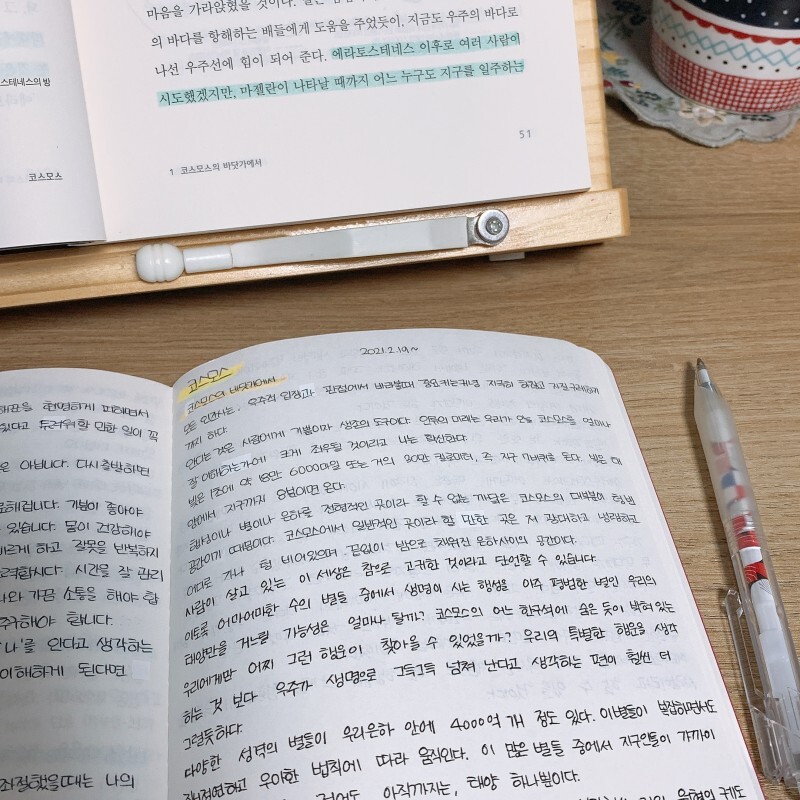 마음을 가라앉혔을 것이다.
의 바다를 항해하는 배들에게 도움을 주었듯이, 지금도 우주의 바다로
나선 우주선에 힘이 되어 준다. 에라토스테네스 이후로 여러 사람이
시도했겠지만, 마젤란이 나타날 때까지 어느 누구도 지구를 일주하는
51
1 코스모스의 바닷가에서
스테네스의 방
코스모스
현명하게 피하면서
있다고 두려워할 만한 일이 꼭
은 아닙니다. 다시 출발하면
해집니다. 기분이 좋아야
있습니다. 몸이 건강해야
바르게 하고 잘못을 반복하지
노력합시다. 시간을 잘 관리
나와 가끔 소통을 해야 합
주구해야 합니다.
'나'를 안다고 생각하는
이해하게 된다면
좌절했을때는 나의
2021.2.19~
코스모스
코스모스의 바닷가에서
모든 인간사는, 우주적 입장과 관점에서 바라볼때 중요키는커녕 지극히 하찮고 자질구레하기
까지 하다.
안다는 것은 사람에게 기쁨이자 생존의 도구이다. 인류의 미래는 우리가 오늘 코스모스를 얼마나
잘 이해하는가에 크게 좌우될 것이라고 나는 확신한다.
빛은 1초에 약 18만 6000마일 또는 거의 30만 킬로미터, 즉 지구 7바퀴를 돈다. 빛은 태
양에서 지구까지 8분이면 온다.
행성이나 별이나 은하를 전형적인 곳이라 할 수 없는 까닭은, 코스모스의 대부분이 텅빈
공간이기 때문이다. 코스모스에서 일반적인 곳이라 할 만한 곳은 저 광대하고 냉랭하고
어디로 가나 텅 비어있으며, 끝없이 밤으로 채워진 은하 사이의 공간이다.
사람이 살고 있는 이 세상은 참으로 고귀한 것이라고 단언할 수 있습니다.
이토록 어마어마한 수의 별들 중에서 생명이 사는 행성을 아주 평범한 별인 우리의
태양만을 거느릴 가능성은 얼마나 될까? 코스모스의 어느 한구석에 숨은 듯이 박혀 있는
우리에게만 어찌 그런 행운이 찾아올 수 있었을까? 우리의 특별한 행운을 생각
하는 것 보다 우주가 생명으로 그득그득 넘쳐 난다고 생각하는 편이 훨씬 더
그럴듯하다.
다양한 성격의 별들이 우리은하 안에 4000억 개 정도 있다. 이별들이 복잡하면서도
질서정연하고 우아한 법칙에 따라 움직인다. 이 많은 별들 중에서 지구인들이 가까이
적어도 아직까지는, 태양 하나뿐이다.